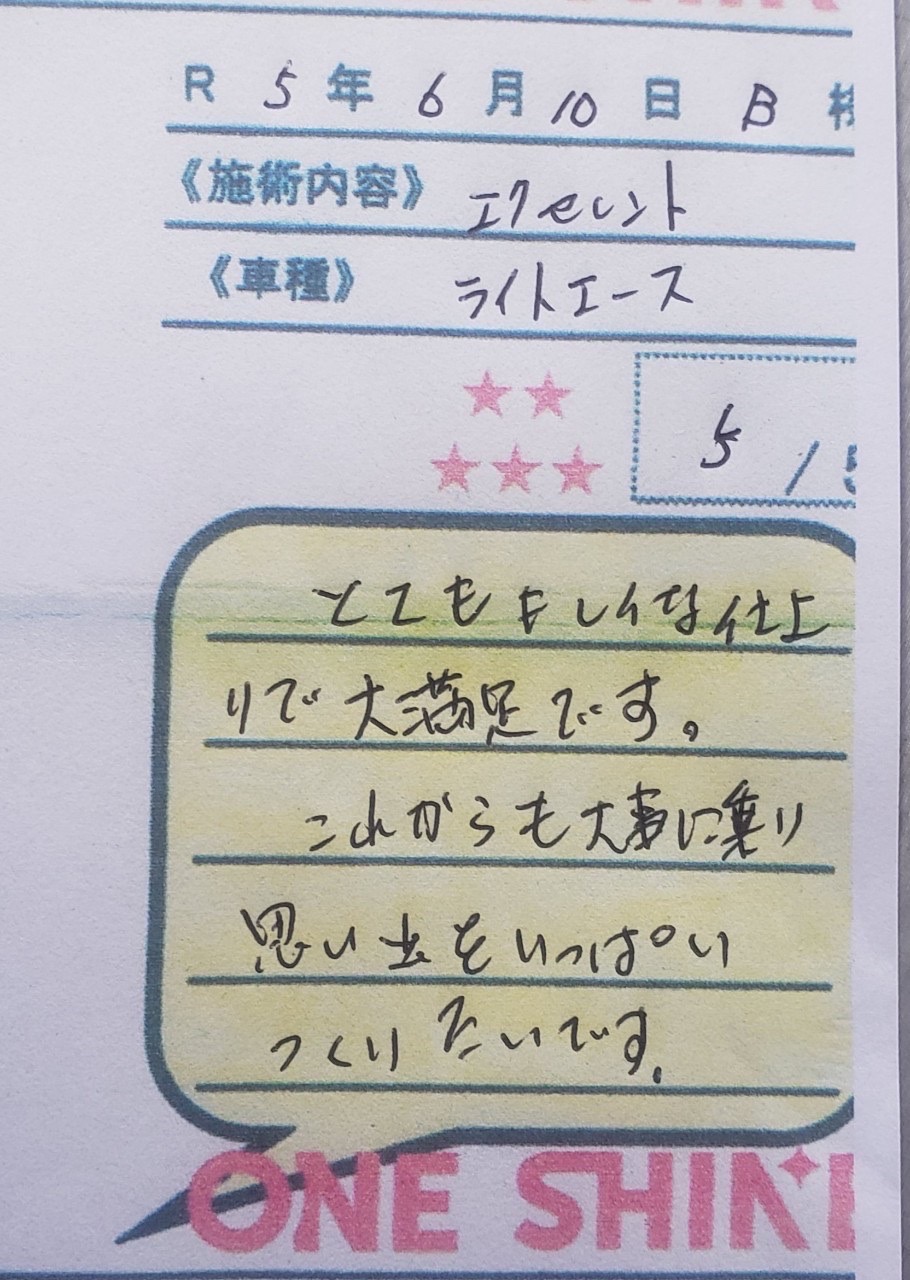 R 5年 6月 10日 B 様
《施術内容》 エクセレント
《車種》 ライトエース
5 / 5
とてもキレイな仕上
りで大満足です。
これからも大事に乗り
思い出をいっぱい
つくりたいです。
ONE SHIN